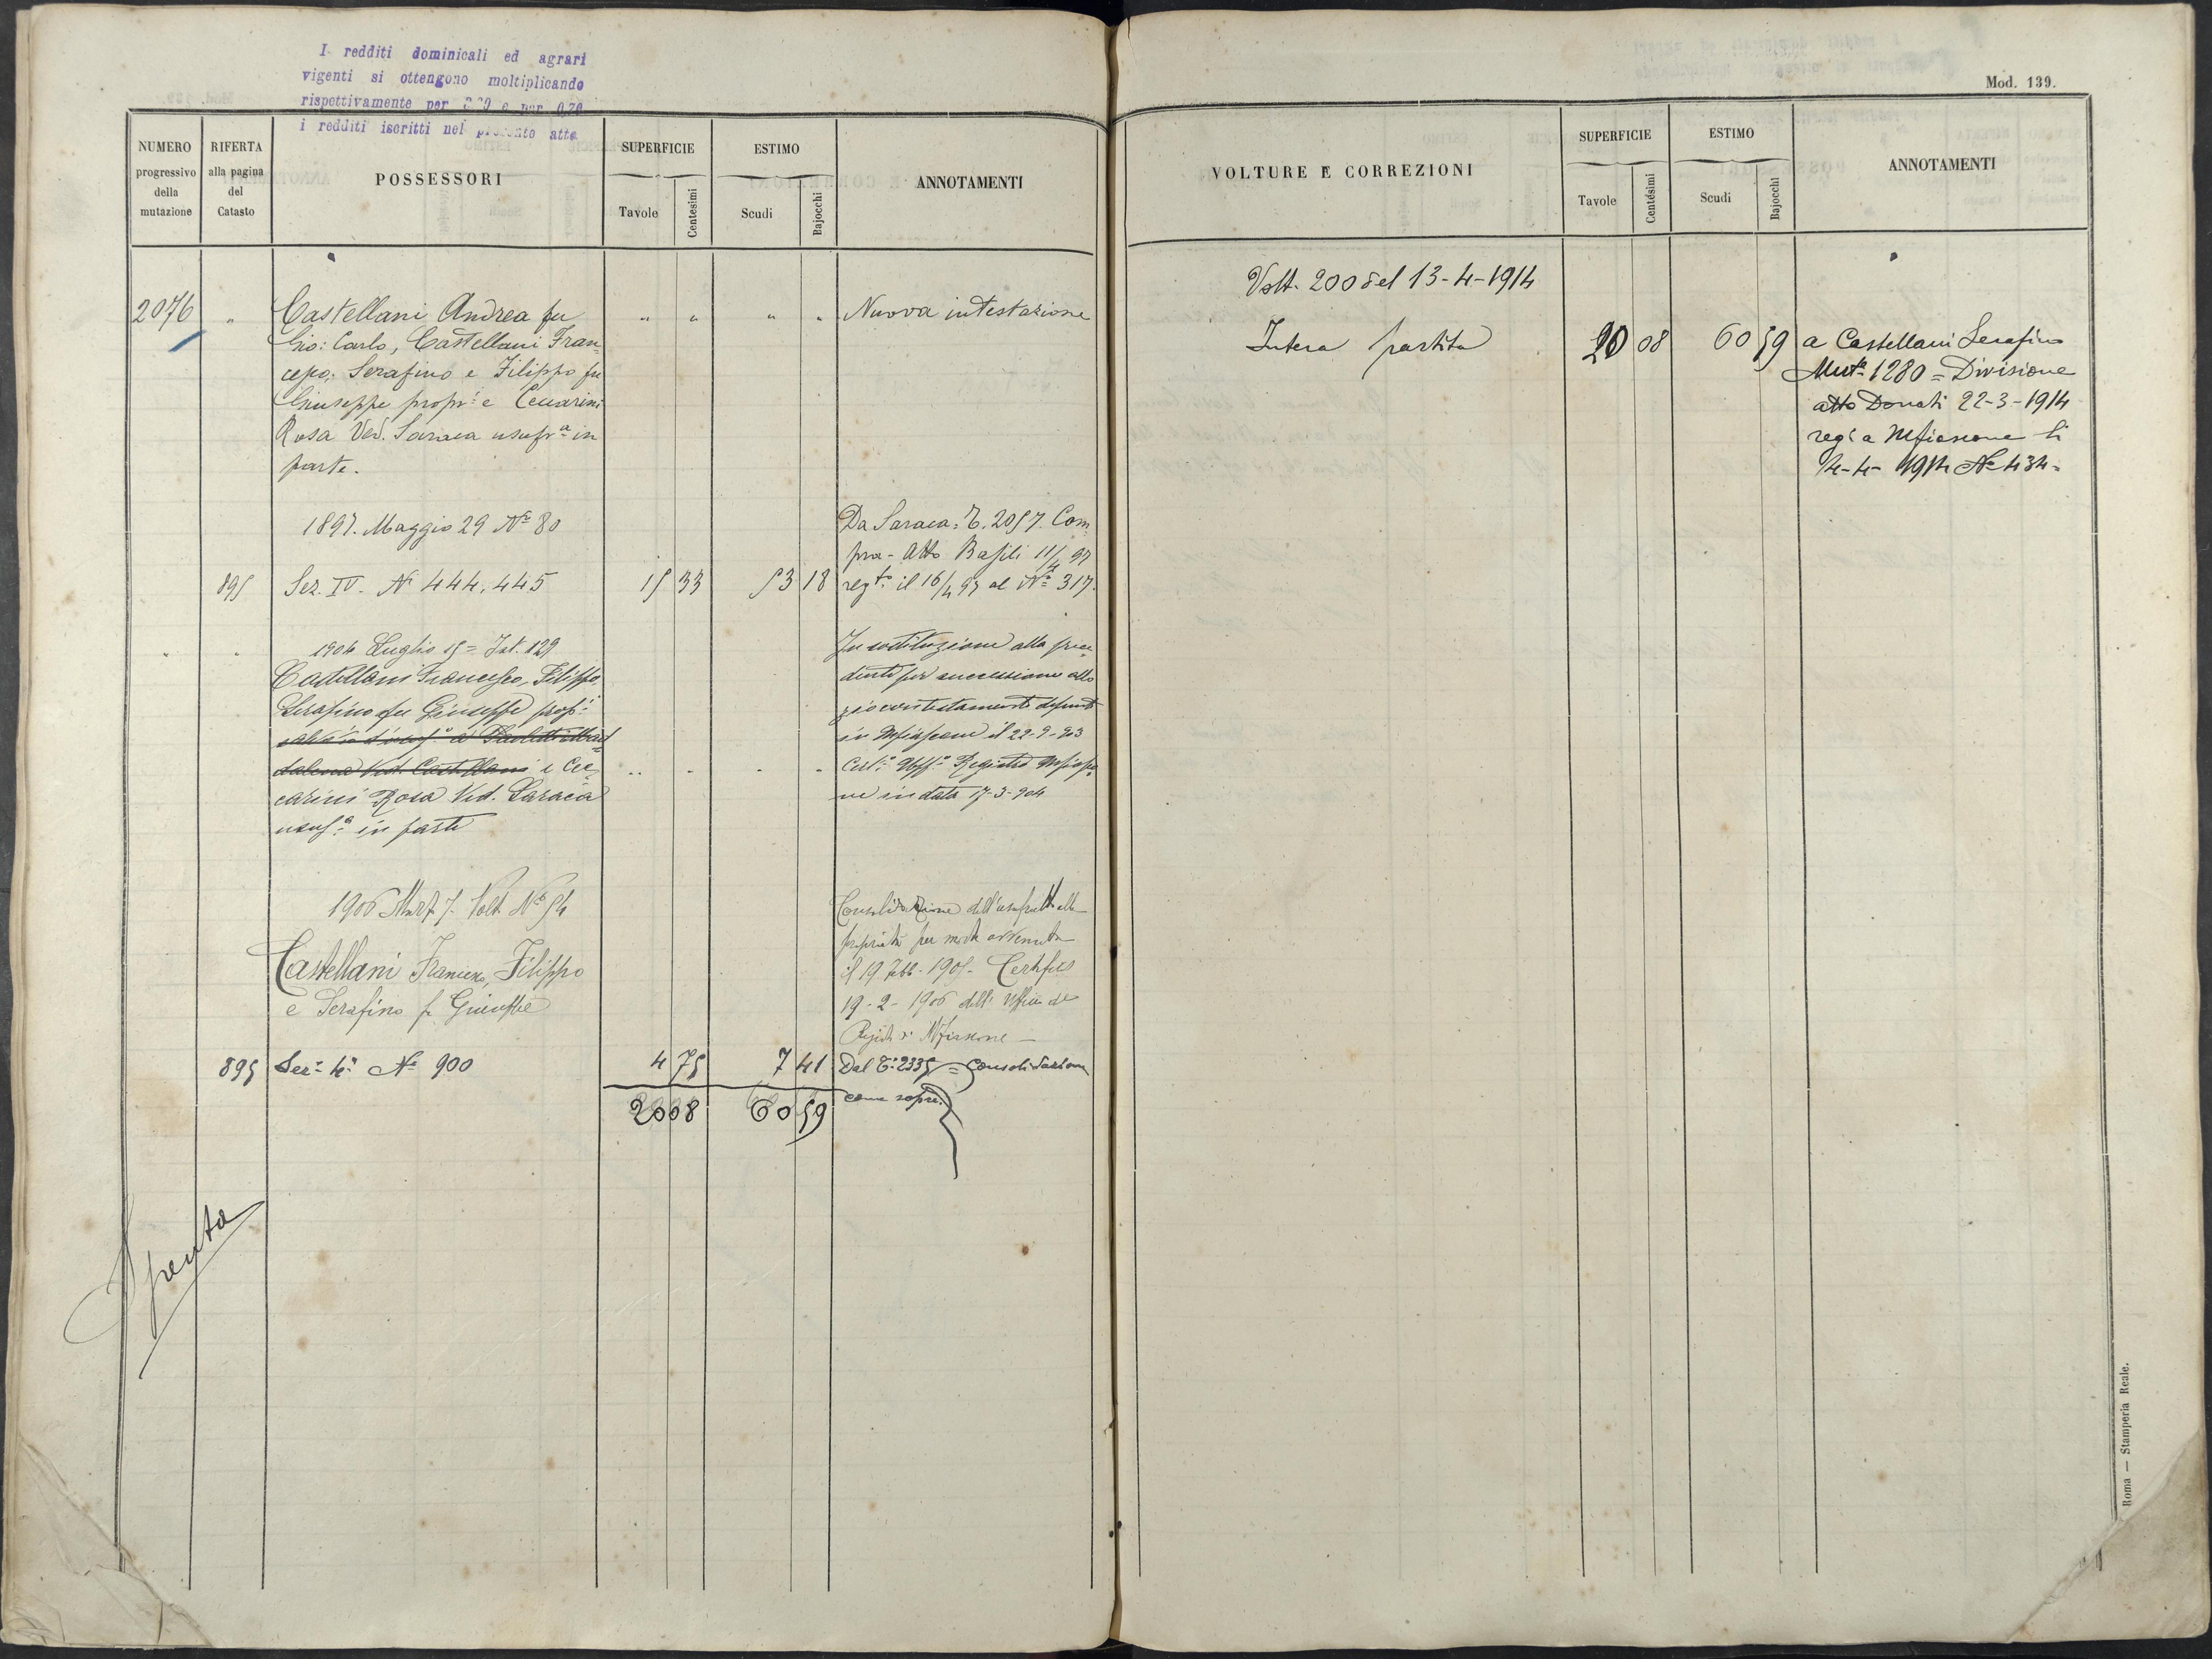 I redditi dominicali ed agrari
vigenti si ottengono moltiplicando
rispettivamente per e per 0,70
i redditi iscritti nel presente atto
NUMERO
progressivo
della
mutazione
RIFERTA
alla pagina
del
Catasto
POSSESSORI
SUPERFICIE
Tavole
Centesimi
ESTIMO
Scudi
Bajocchi
ANNOTAMENTI
2076 " Castellani Andrea fu " " " " Nuova intestazione
Gio: Carlo, Castellani Fran=
cesco, Serafino e Filippo fu
Giuseppe propr.i e Ceccarini
Rosa Ved. Saraca usufr.a in
parte.
1897. Maggio 29 No 80
Da Saraca: T. 2057. Com
pra - Atto Basili 11/4 97
895 Sez. IV. Ni 444, 445 15 33 53 18 regto il 16/4 97 al No 317.
" " 1904 Luglio 15 = Int. 129
In sostituzione alla prece
Castellani Francesco, Filippo,
dente per successione allo
Serafino fu Giuseppe prop.i
zio defunto
in Mfiascone il 22-9-903
Ved. Castellani e Cec
Cert.o Uff.o Registro Mfiasco
carini Rosa Ved. Saraca
ne in data 17-3-904
usuf.a in parte
1906 Marzo 7. Volt. No 54
Consolidazione dell'usufrutto alla
proprietà per morte avvenuta
Castellani Francesco, Filippo
il 19 Febb. 1905 - Certificato
e Serafino fu Giuseppe
19-2-1906 dell'Ufficio del
Registro Mfiascone
895 Sez.e 4.a No 900 4 75 7 41 Dal T. 2335 = Consolidazione
come sopra.
20 08 60 59
Spenta
Mod. 139.
VOLTURE E CORREZIONI
SUPERFICIE
Tavole
Centesimi
ESTIMO
Scudi
Bajocchi
ANNOTAMENTI
Volt. 200 del 13-4-1914
Intera partita 20 08 60 59 a Castellani Serafino
Mut.e 1280 = Divisione
atto Donati 22-3-1914
reg.o a Mfiascone li
4-4-1914 No 434=
Roma — Stamperia Reale.